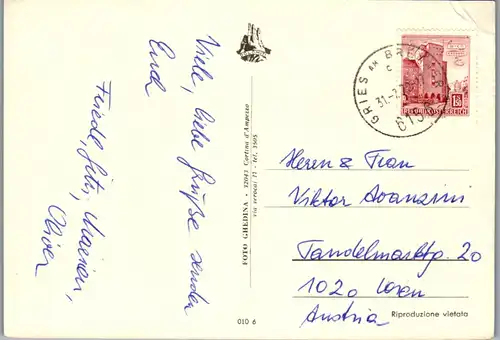 Viele, liebe Grüße senden
Euch
Friedl, Oliver
FOTO GHEDINA - 32043 Cortina d'Ampezzo
via
tel. 3505
GRIES AM BRENNER
31.-2.7
REPUBLIK ÖSTERREICH
Herrn & Frau
Viktor Avanzini
Tandelmarktg. 20
1020 Wien
Austria
010 6
Riproduzione vietata